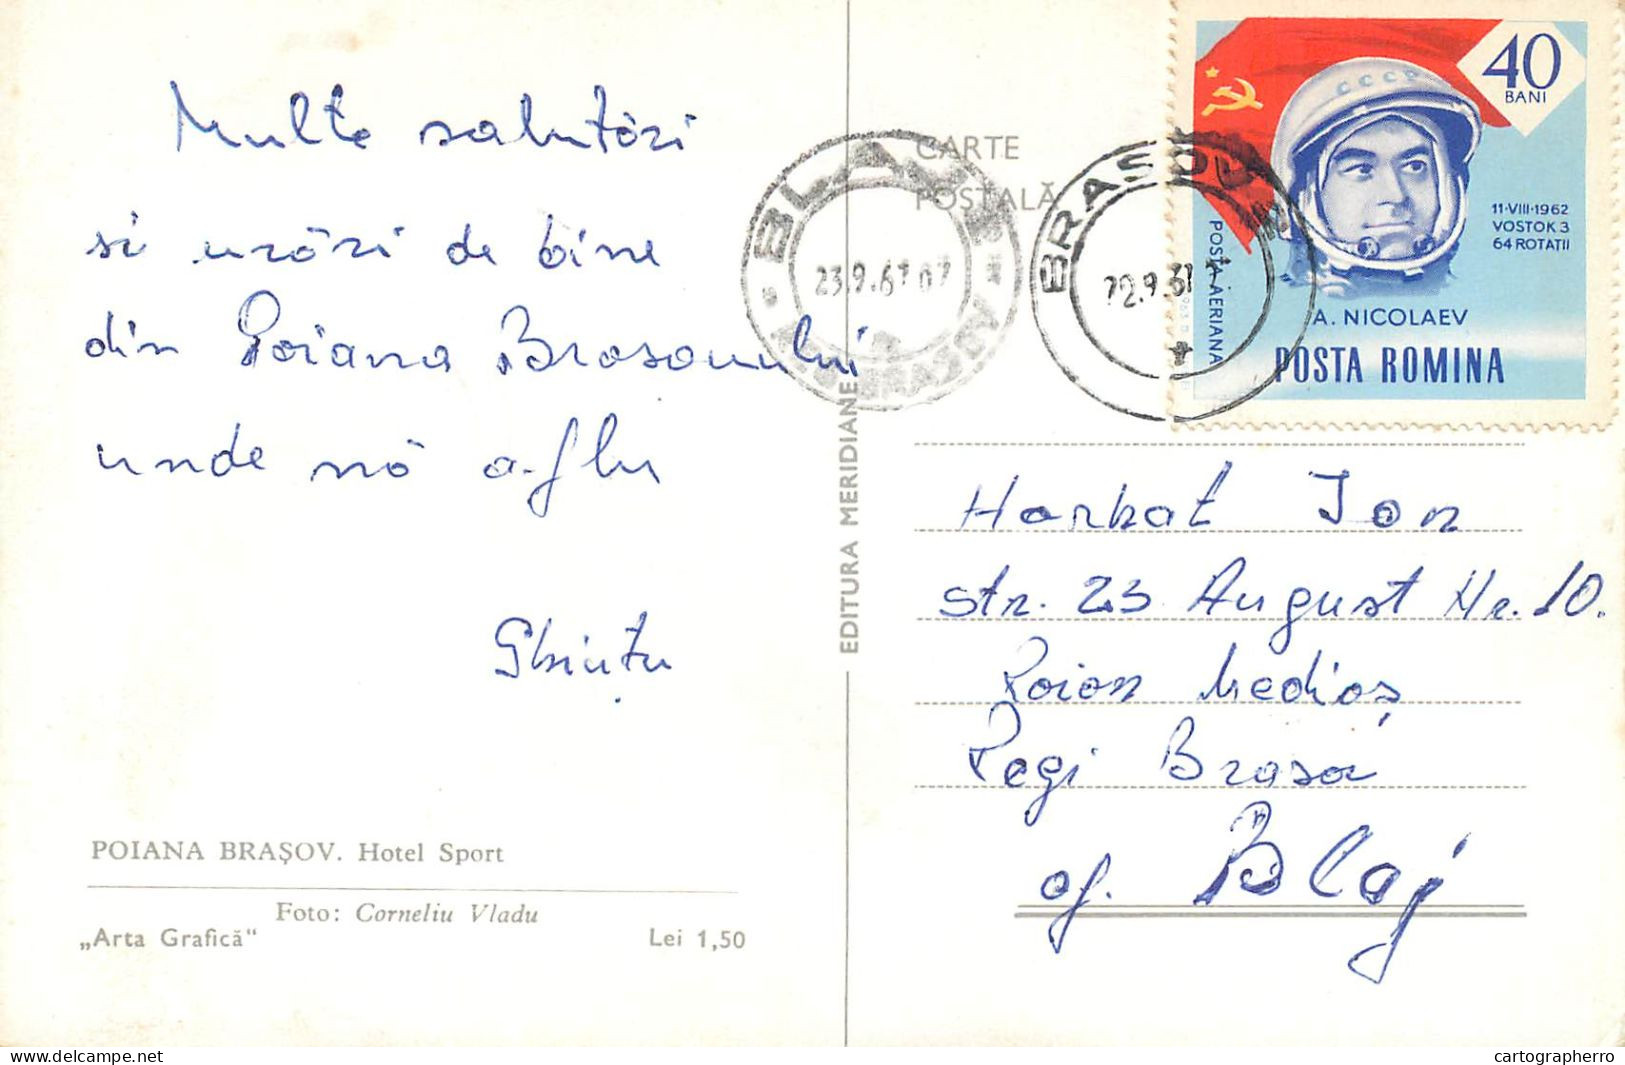 Multe salutări
si urări de bine
din Poiana Brasovului
unde mă aflu
Ghiuțu
POIANA BRAȘOV. Hotel Sport
Foto: Corneliu Vladu
„Arta Grafică"
Lei 1,50
EDITURA MERIDIANE
CARTE
POȘTALĂ
BLAJ
23.9.67 07
BRASOV
BRASOV
22.9.67
CCCP
40
BANI
11·VIII·1962
VOSTOK 3
64 ROTAȚII
A. NICOLAEV
POSTA AERIANA
POSTA ROMINA
Harbat Ion
str. 23 August Nr. 10.
Raion Mediaș
Regi Brasov
of. Blaj
cartographerro